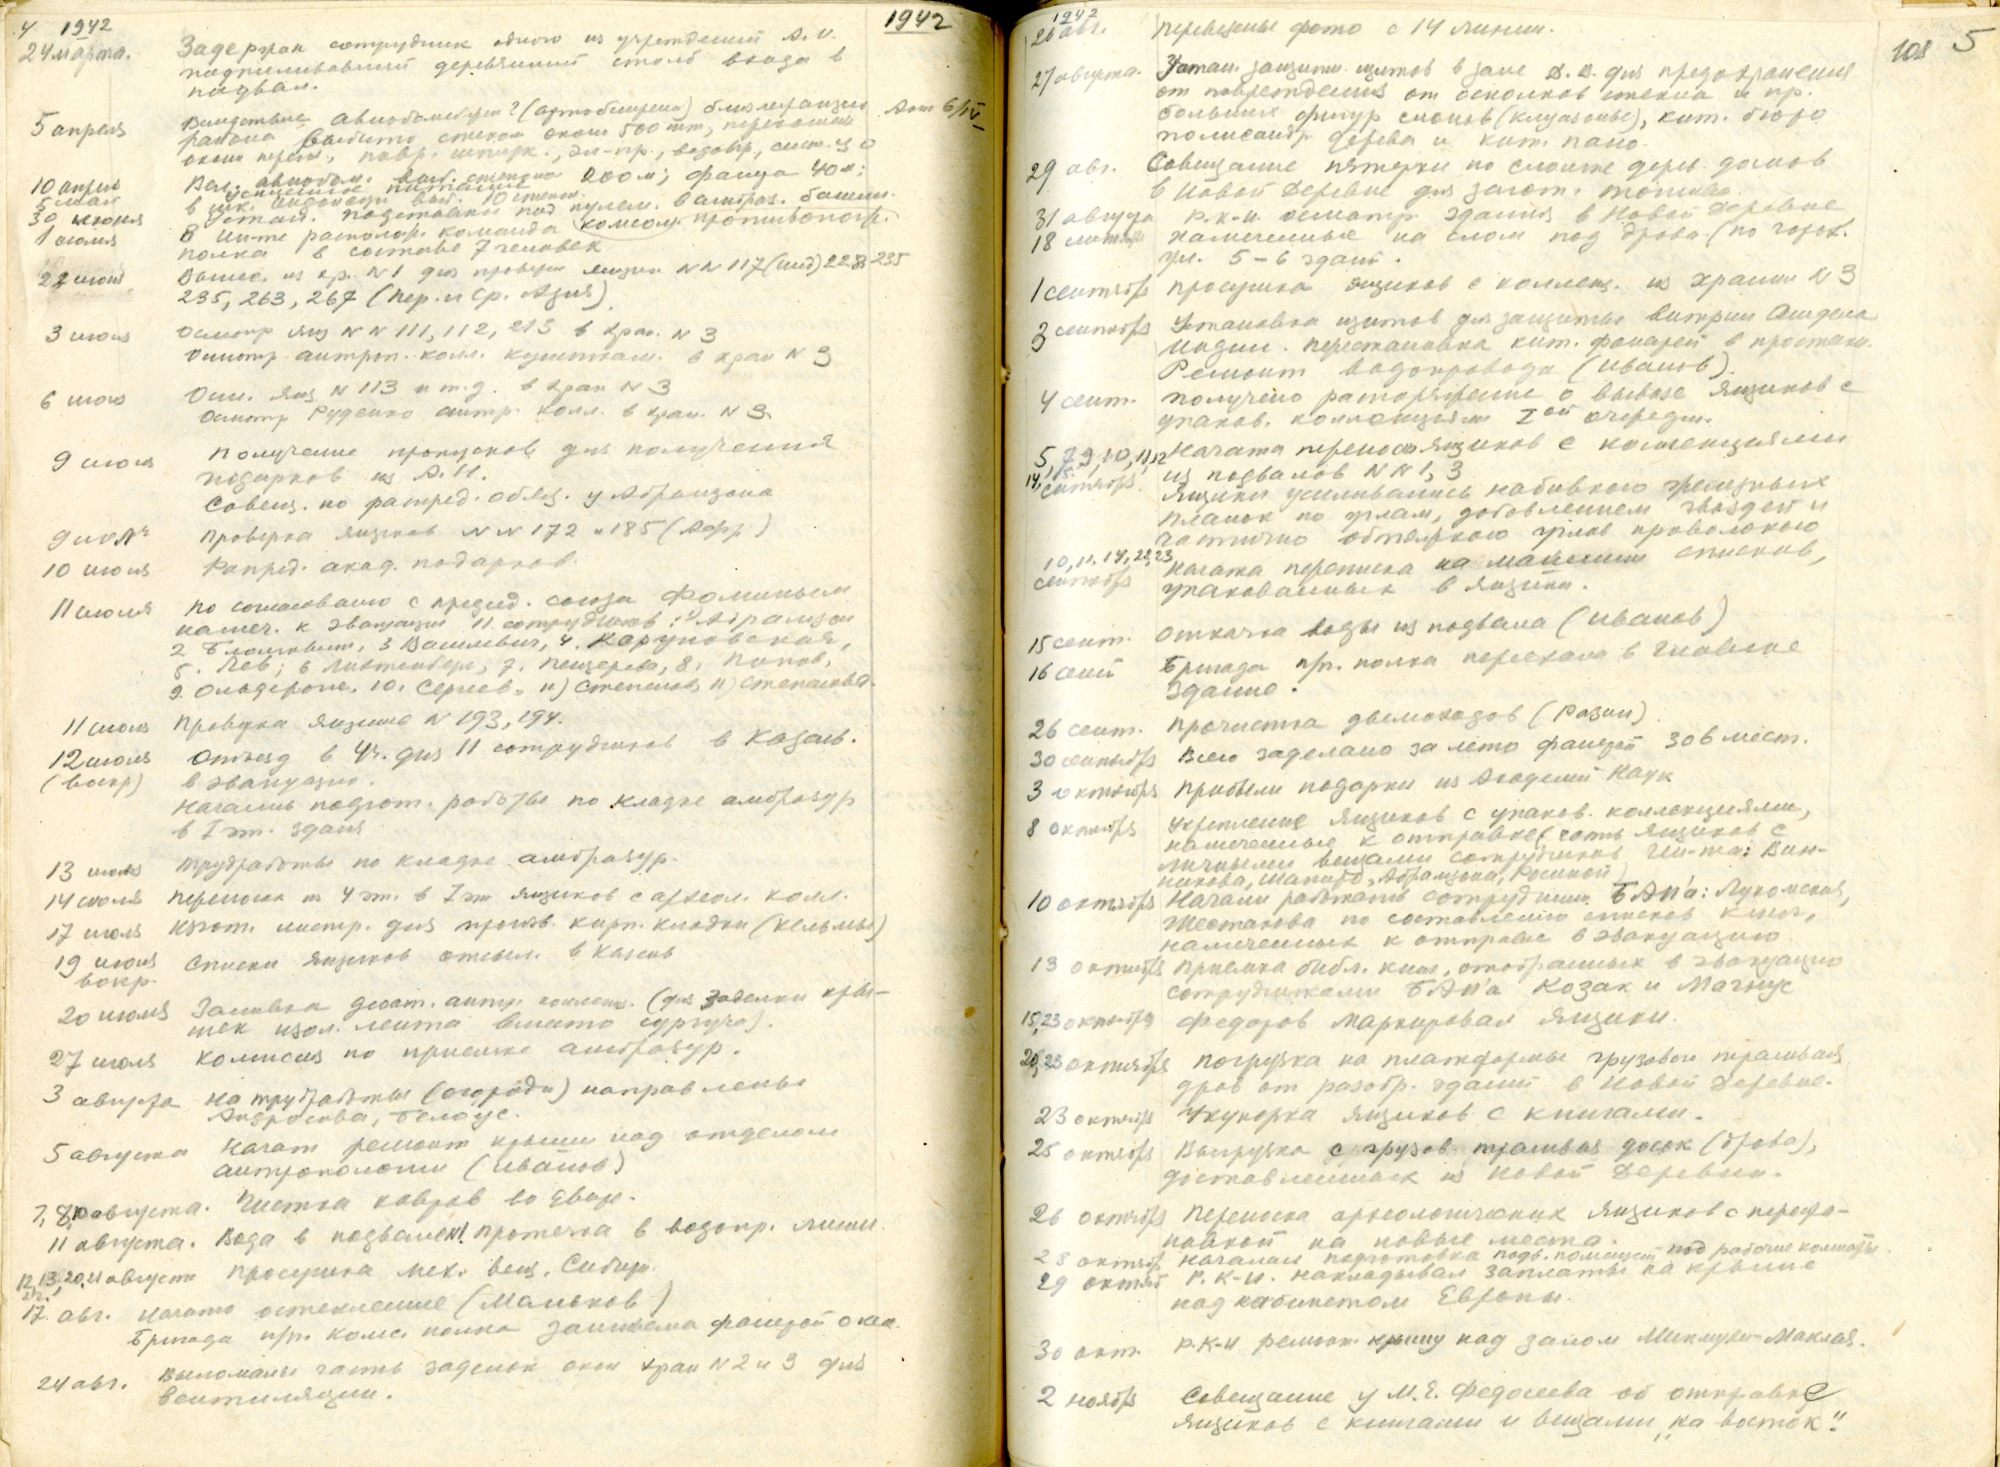 4 1942
1942
24 марта. Задержан сотрудник одного из учреждений А.Н.
подпиливавший деревянный столб входа в
подвал.
5 апреля Вследствие авиобомбежки? (артобстрела) близлежащего Акт 6/IV
района выбито стекол около 500 шт,
10 апреля Вал. авиобом. выб. стекол 200 м; фанера 40 м;
5 мая усиленное питание
30 июня Устан. подставки под пулем. в амбраз. башни.
1 июля В ин-те располож. команда комсом. противопож.
полка в составе 7 человек
22 июня Вынес. из хр. N 1 для проверки ящики NN 117 (инд) 228-235
235, 263, 267 (Пер. и Ср. Азия).
3 июля Осмотр ящ NN 111, 112, 213 в хран. N 3
Осмотр антроп. колл. в хран N 3
6 июля Осм. ящ N 113 и т.д. в хран N 3
Осмотр Руденко антр. колл. в хран. N 3.
9 июля Получение пропусков для получения
подарков из А.Н.
Совещ. по распред. обяз. у Абрамзона
9 июля Проверка ящиков NN 172 и 185 (Афр.)
10 июля Распред. акад. подарков.
11 июля По согласованию с председ. союза Фоминым
намеч. к эвакуации 11 сотрудников: 1) Абрамзон
2 Бломквист, 3 Василевич, 4. Каруновская,
5. Лев; 6 Лихтенберг, 7. Пещерева, 8. Попов,
9. Ольдерогге. 10. Сергеев. 11) Степанов 11) Степанова.
11 июля Проверка ящиков N 193, 194.
12 июля Отъезд в 4 ч. дня 11 сотрудников в Казань.
(воскр) в эвакуацию.
Начались подгот. работы по кладке амбразур
в I эт. здания
13 июля Трудработы по кладке амбразур.
14 июля Переноска из 4 эт. в I эт ящиков с археол. колл.
17 июля Изгот. инстр. для произв. кирп. кладки (кельмы)
19 июля Списки ящиков отсыл. в Казань
воскр.
20 июля Заливка антр. коллекц. (для заделки кры-
шек изол. лента вместо сургуча).
27 июля Комиссия по приемке амбразур.
3 августа На трудработы (огороды) направлены
Андросова, Белоус.
5 августа Начат ремонт крыши над отделом
антропологии (Иванов)
7, 8, 10 августа. Чистка ковров во Евр.
11 августа. Вода в подвале N1. протечка в водопр. линии.
12, 13, 20, 21 августа Просушка мех. вещ. Сибири.
17 авг. Начато остекление (Маньков)
Бригада п/п. комс. полка занимается фанерой окон.
24 авг. Выломаны часть заделок окон хран N 2 и 3 для
вентиляции.
1942
108 5
26 авг. Перевезены фото с 14 линии.
27 августа. Устан. защитн. щитов в зале Д.В. для предохранения
от повреждения от осколков стекла и пр.
больших фигур слонов (клуазонне), кит. бюро
полисандр. дерева и кит. пано.
29 авг. Совещание пятерки по сломке дерев. домов
в Новой Деревне для загот. топлива.
31 августа Р.К-И. осмотр. здания в Новой Деревне
18 намеченные на слом под дрова. (по
ул. 5-6 здан.
1 сентября Просушка ящиков с коллекц. из храни N 3
3 сентября Установка щитов для защиты витрин Отдела
Индии. Перестановка кит. фонарей в
Ремонт водопровода (Иванов).
4 сент. Получено распоряжение о вывозе ящиков с
упаков. коллекциями Iой очереди.
5, 7, 9, 10, 11, 12 Начата переноска ящиков с коллекциями
14, 15. сентября из подвалов NN 1, 3
Ящики усиливались набивкою железных
планок по углам, добавлением гвоздей и
частично обтяжкою углов проволокою
10, 11, 14, 22, 23 сентября Начата переписка на машинке списков,
упакованных в ящики.
15 сент. Откачка воды из подвала (Иванов)
16 сент Бригада п/п. полка переехала в главное
здание.
26 сент. Прочистка дымоходов (Разин)
30 сентября Всего заделано за лето фанерой 306 мест.
3 октября Прибыли подарки из Академии Наук
8 октября Укрепление ящиков с упаков. коллекциями,
намеченные к отправке (часть ящиков с
личными вещами сотрудников Ин-та: Вин-
никова, Шапиро, Абрамзона, Росиной)
10 октября Начали работать сотрудники БАН'а: Лукомская,
Шестакова по составлению списков книг,
намеченных к отправке в эвакуацию
13 октября Приемка библ. книг, отобранных в эвакуацию
сотрудниками БАН'а Козак и Магнус
15, 23 октября Федоров маркировал ящики.
20, 23 октября Погрузка на платформы грузового трамвая
дров от разобр. зданий в Новой Деревне.
23 октября Укупорка ящиков с книгами.
25 октября Выгрузка с грузов. трамвая досок (дрова),
доставленных из Новой Деревни.
26 октября Переноска археологических ящиков с перефо-
новкой на новые места.
28 октября Началась подготовка подв. помещен. под рабочие комнаты.
29 октяб Р.К-И. накладывал заплаты на крыше
над кабинетом Европы.
30 окт. Р.К-И ремонт. крышу над залом Миклухи-Маклая.
2 ноября Совещание у М.Е. Федосеева об отправке
ящиков с книгами и вещами „на восток".